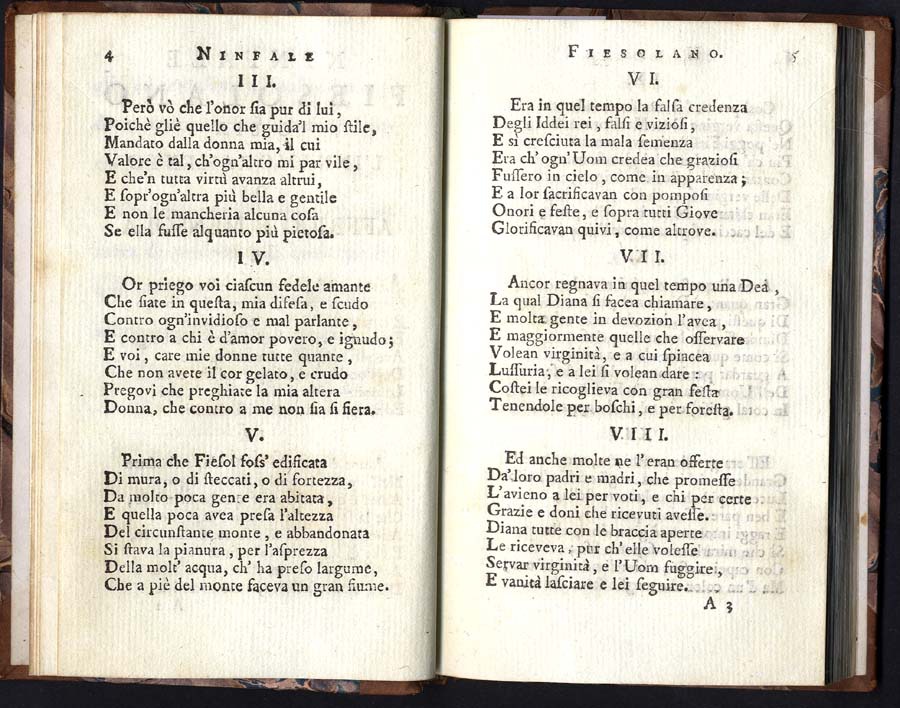 4 NINFALE
III.
Però vò che l'onor ſia pur di lui,
Poichè gliè quello che guida'l mio ſtile,
Mandato dalla donna mia, il cui
Valore è tal, ch'ogn'altro mi par vile,
E che'n tutta virtù avanza altrui,
E ſopr'ogn'altra più bella e gentile
E non le mancheria alcuna coſa
Se ella fuſſe alquanto più pietoſa.
IV.
Or priego voi ciaſcun fedele amante
Che ſiate in queſta, mia difeſa, e ſcudo
Contro ogn'invidioſo e mal parlante,
E contro a chi è d'amor povero, e ignudo;
E voi, care mie donne tutte quante,
Che non avete il cor gelato, e crudo
Pregovi che preghiate la mia altera
Donna, che contro a me non ſia sì fiera.
V.
Prima che Fieſol foſſ' edificata
Di mura, o di ſteccati, o di fortezza,
Da molto poca gente era abitata,
E quella poca avea preſa l'altezza
Del circunſtante monte, e abbandonata
Si ſtava la pianura, per l'aſprezza
Della molt' acqua, ch' ha preſo largume,
Che a piè del monte faceva un gran fiume.
FIESOLANO. 5
VI.
Era in quel tempo la falſa credenza
Degli Iddei rei, falſi e vizioſi,
E sì creſciuta la mala ſemenza
Era ch' ogn' Uom credea che grazioſi
Fuſſero in cielo, come in apparenza;
E a lor ſacrificavan con pompoſi
Onori e feſte, e ſopra tutti Giove
Glorificavan quivi, come altrove.
VII.
Ancor regnava in quel tempo una Dea,
La qual Diana ſi facea chiamare,
E molta gente in devozion l'avea,
E maggiormente quelle che oſſervare
Volean virginità, e a cui ſpiacea
Luſſuria, e a lei ſi volean dare:
Coſtei le ricoglieva con gran feſta
Tenendole per boſchi, e per foreſta.
VIII.
Ed anche molte ne l'eran offerte
Da'loro padri e madri, che promeſſe
L'avieno a lei per voti, e chi per certe
Grazie e doni che ricevuti aveſſe.
Diana tutte con le braccia aperte
Le riceveva, pur ch' elle voleſſe
Servar virginità, e l'Uom fuggire,
E vanità laſciare e lei ſeguire.
A 3